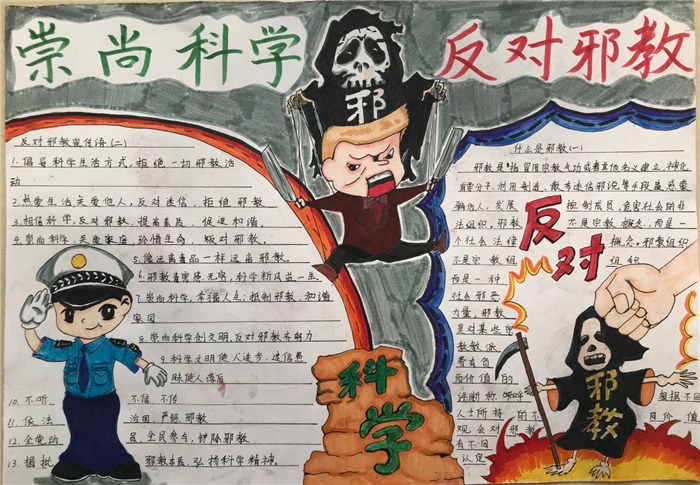 崇尚科学
反对邪教
邪
反对邪教宣传语(二)
1.倡导科学生活方式,拒绝一切邪教活
动
2.热爱生活关爱他人,反对迷信,拒绝邪教
3.相信科学,反对邪教,提高素质,促进和谐.
4.崇尚科学,关爱家庭,珍惜生命,反对邪教.
5.像远离毒品一样远离邪教.
6.邪教毒害是无穷,科学新风益一生.
7.崇尚科学,幸福人生;抵制邪教,和谐
家园
8.崇尚科学创文明,反对邪教齐努力
9.科学文明使人进步,迷信愚
昧使人落后
10.不听、不信、不传
11.依法治国,严惩邪教
12.全党动员,全民参与,铲除邪教
13.揭批邪教本质,弘扬科学精神.
科学
什么是邪教(一)
邪教是指冒用宗教气功或者其他名义建立,神化
首要分子,利用制造、散布迷信邪说等手段蛊惑蒙
骗他人,发展控制成员,危害社会的非
法组织,邪教不是宗教概念,而是一
个社会法律概念,邪教组织
不是宗教组组织
而是一种
社会邪恶
力量,邪教
是对某些宗
教教派
带有负
面价值的
评断称呼
人士所持的不
观会对邪教
有不同
认定
根据不同
同价值
反对
邪教